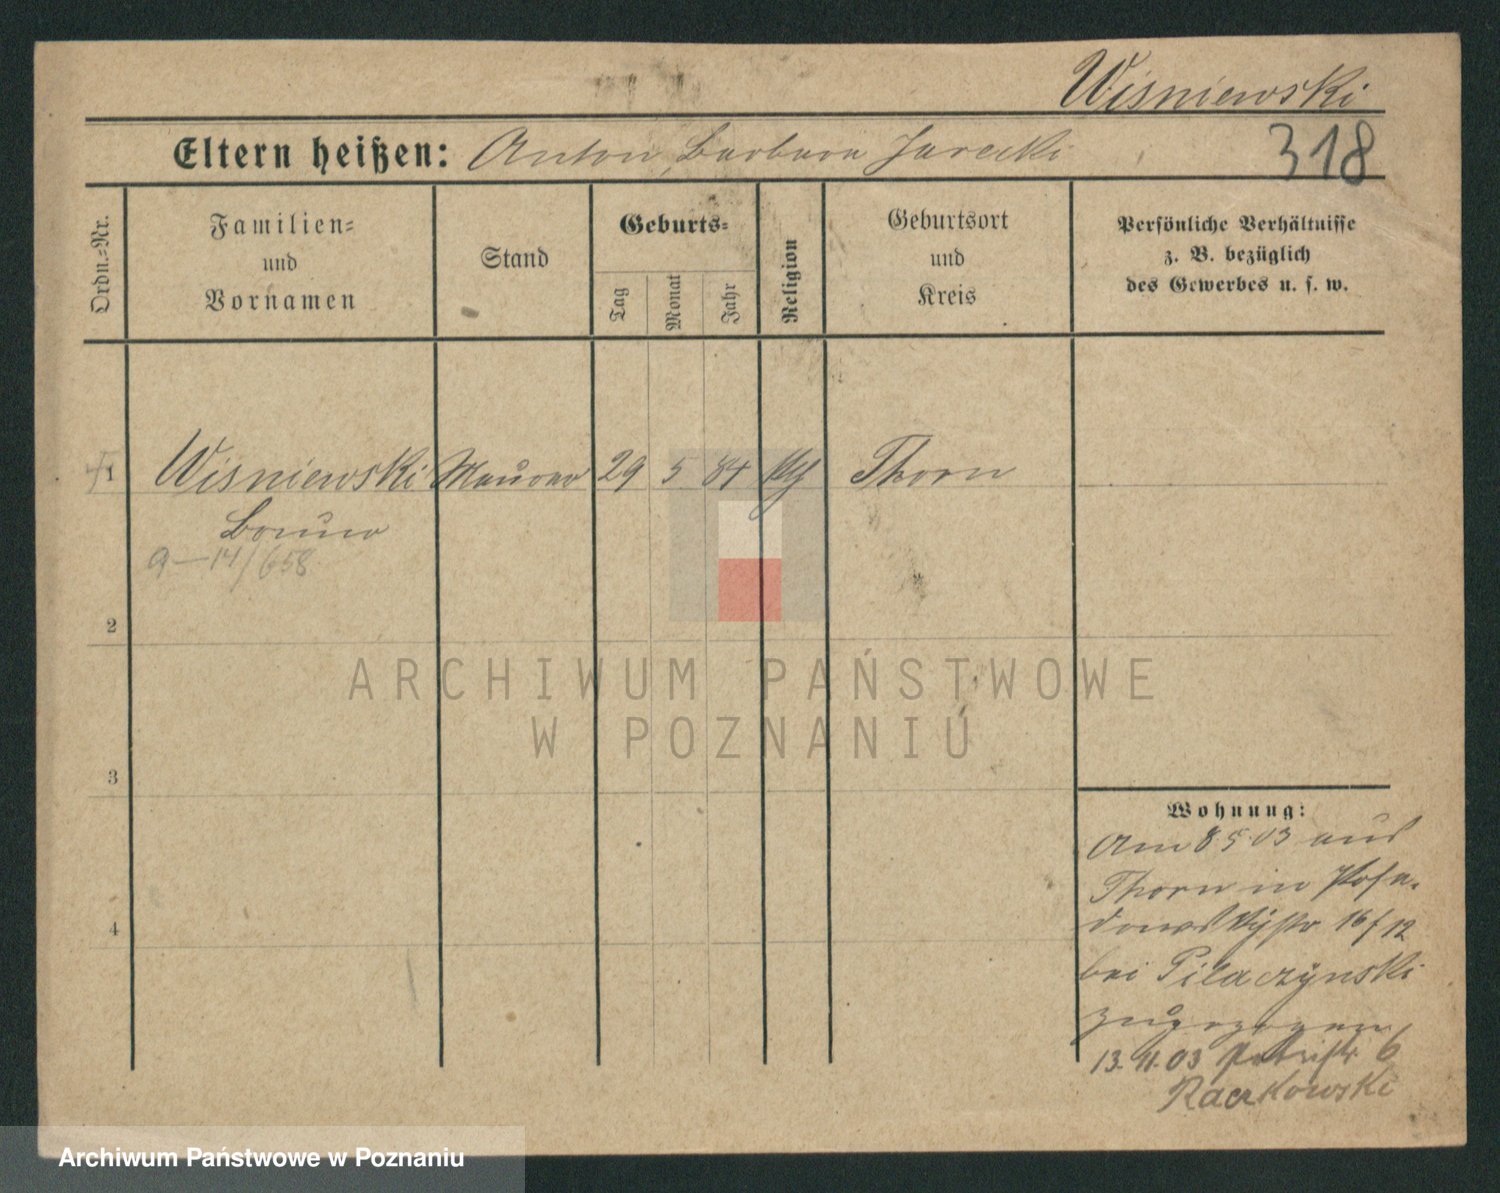 Wisniewski
Eltern heißen: Anton, Barbara Jarecki
318
Ordn.-Nr.
Familien-
und
Vornamen
Stand
Geburts-
Tag
Monat
Jahr
Religion
Geburtsort
und
Kreis
Persönliche Verhältnisse
z. B. bezüglich
des Gewerbes u. s. w.
1 Wisniewski Maurer 29 5 84 Thorn
Bruno
a—14/658
2
3
4
ARCHIWUM PAŃSTWOWE
W POZNANIU
Wohnung:
Am 8 5 03 aus
Thorn in
16/12
bei Pilaczÿnski
zugezogen
13.11.03 Petristr 6
Raczkowski
Archiwum Państwowe w Poznaniu